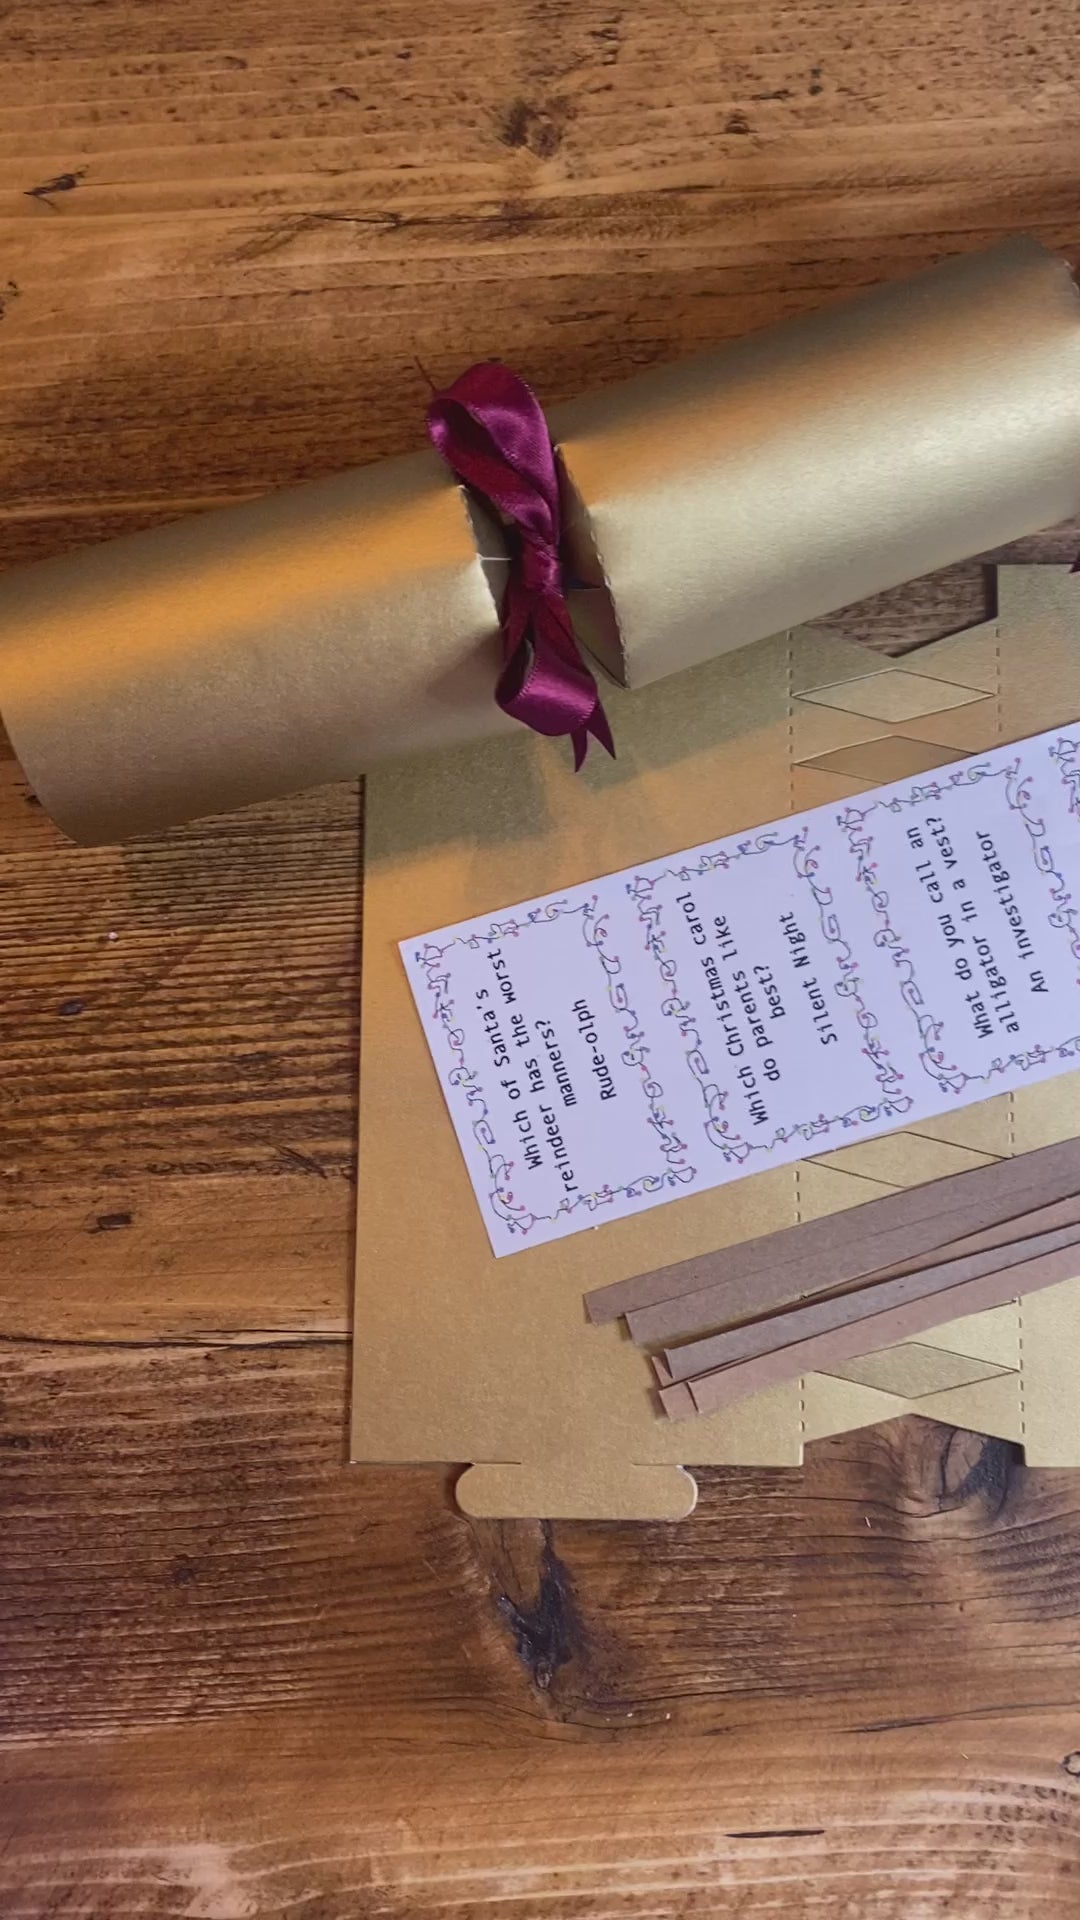 Which of Santa's
reindeer has the worst
manners?
Rude-olph
Which Christmas carol
do parents like
best?
Silent Night
What do you call an
alligator in a vest?
An investigator